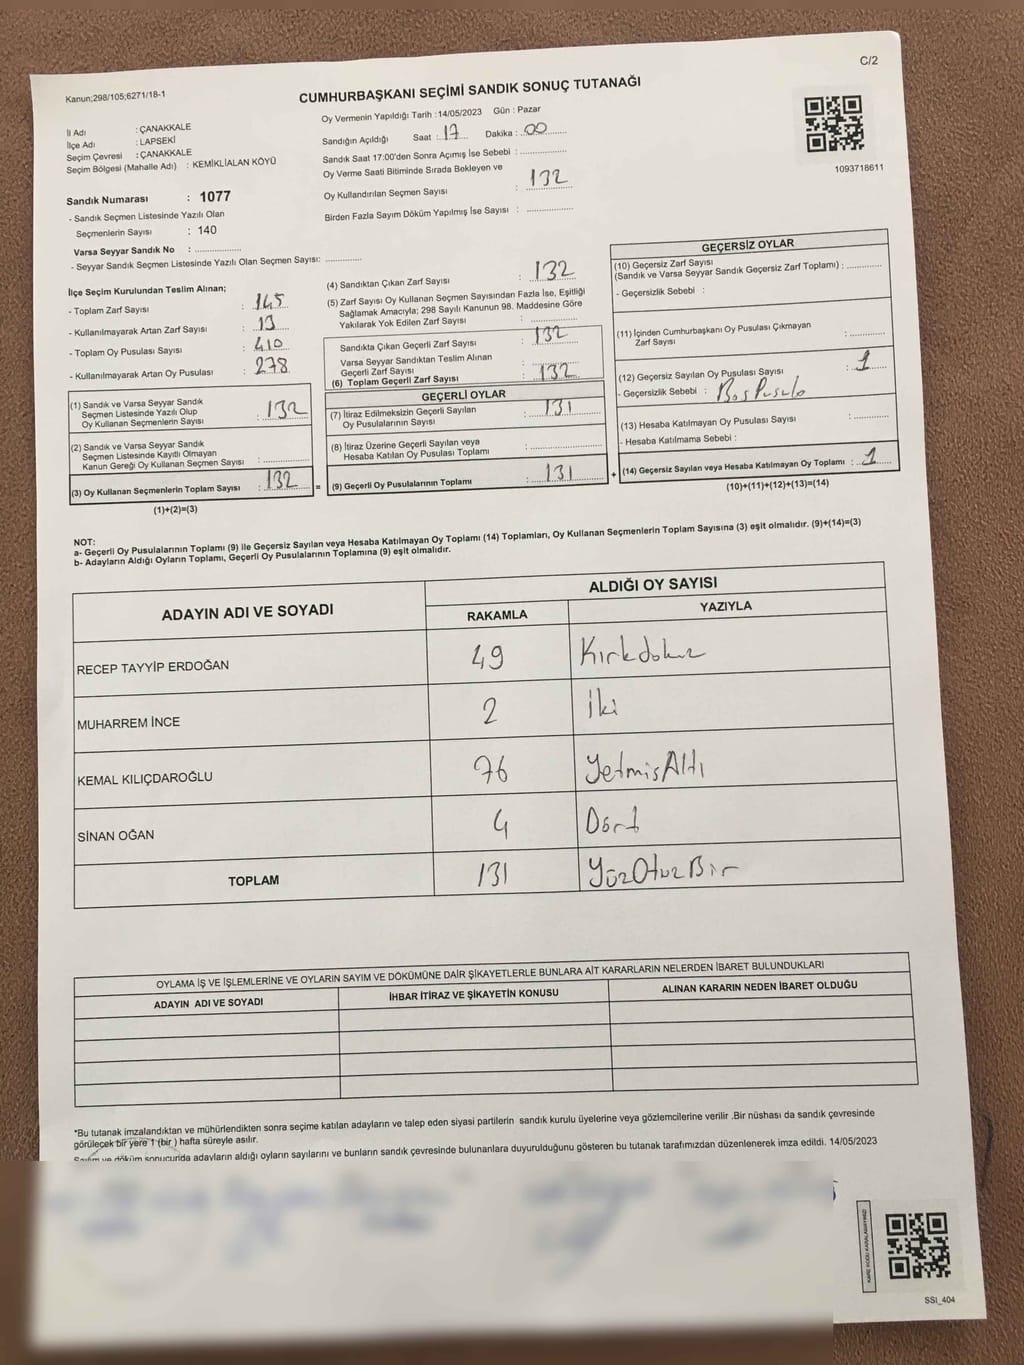 C/2
Kanun;298/105;6271/18-1
CUMHURBAŞKANI SEÇİMİ SANDIK SONUÇ TUTANAĞI
1093718611
İl Adı : ÇANAKKALE
İlçe Adı : LAPSEKİ
Seçim Çevresi : ÇANAKKALE
Seçim Bölgesi (Mahalle Adı) : KEMİKLİALAN KÖYÜ
Sandık Numarası : 1077
- Sandık Seçmen Listesinde Yazılı Olan
Seçmenlerin Sayısı : 140
Varsa Seyyar Sandık No : ....................
- Seyyar Sandık Seçmen Listesinde Yazılı Olan Seçmen Sayısı: ..............
Oy Vermenin Yapıldığı Tarih :14/05/2023 Gün : Pazar
Sandığın Açıldığı Saat : 17 Dakika : 00
Sandık Saat 17:00'den Sonra Açımış İse Sebebi : ................
Oy Verme Saati Bitiminde Sırada Bekleyen ve
Oy Kullandırılan Seçmen Sayısı : 132
Birden Fazla Sayım Döküm Yapılmış İse Sayısı : ................
İlçe Seçim Kurulundan Teslim Alınan;
- Toplam Zarf Sayısı : 145
- Kullanılmayarak Artan Zarf Sayısı : 13
- Toplam Oy Pusulası Sayısı : 410
- Kullanılmayarak Artan Oy Pusulası : 278
(1) Sandık ve Varsa Seyyar Sandık
Seçmen Listesinde Yazılı Olup
Oy Kullanan Seçmenlerin Sayısı : 132
(2) Sandık ve Varsa Seyyar Sandık
Seçmen Listesinde Kayıtlı Olmayan
Kanun Gereği Oy Kullanan Seçmen Sayısı : ................
(3) Oy Kullanan Seçmenlerin Toplam Sayısı : 132
(1)+(2)=(3)
=
(4) Sandıktan Çıkan Zarf Sayısı : 132
(5) Zarf Sayısı Oy Kullanan Seçmen Sayısından Fazla İse, Eşitliği
Sağlamak Amacıyla; 298 Sayılı Kanunun 98. Maddesine Göre
Yakılarak Yok Edilen Zarf Sayısı : ................
Sandıkta Çıkan Geçerli Zarf Sayısı : 132
Varsa Seyyar Sandıktan Teslim Alınan
Geçerli Zarf Sayısı :
(6) Toplam Geçerli Zarf Sayısı : 132
GEÇERLİ OYLAR
(7) İtiraz Edilmeksizin Geçerli Sayılan
Oy Pusulasının Sayısı : 131
(8) İtiraz Üzerine Geçerli Sayılan veya
Hesaba Katılan Oy Pusulası Toplamı : ................
(9) Geçerli Oy Pusulalarının Toplamı : 131
+
GEÇERSİZ OYLAR
(10) Geçersiz Zarf Sayısı
(Sandık ve Varsa Seyyar Sandık Geçersiz Zarf Toplamı) : ............
- Geçersizlik Sebebi :
(11) İçinden Cumhurbaşkanı Oy Pusulası Çıkmayan
Zarf Sayısı : ............
(12) Geçersiz Sayılan Oy Pusulası Sayısı : 1
- Geçersizlik Sebebi : Boş Pusula
(13) Hesaba Katılmayan Oy Pusulası Sayısı : ............
- Hesaba Katılmama Sebebi :
(14) Geçersiz Sayılan veya Hesaba Katılmayan Oy Toplamı : 1
(10)+(11)+(12)+(13)=(14)
NOT:
a- Geçerli Oy Pusulalarının Toplamı (9) ile Geçersiz Sayılan veya Hesaba Katılmayan Oy Toplamı (14) Toplamları, Oy Kullanan Seçmenlerin Toplam Sayısına (3) eşit olmalıdır. (9)+(14)=(3)
b- Adayların Aldığı Oyların Toplamı, Geçerli Oy Pusulalarının Toplamına (9) eşit olmalıdır.
ADAYIN ADI VE SOYADI ALDIĞI OY SAYISI
RAKAMLA YAZIYLA
RECEP TAYYİP ERDOĞAN 49 Kırkdokuz
MUHARREM İNCE 2 İki
KEMAL KILIÇDAROĞLU 76 YetmisAltı
SİNAN OĞAN 4 Dört
TOPLAM 131 YüzOtuzBir
OYLAMA İŞ VE İŞLEMLERİNE VE OYLARIN SAYIM VE DÖKÜMÜNE DAİR ŞİKAYETLERLE BUNLARA AİT KARARLARIN NELERDEN İBARET BULUNDUKLARI
ADAYIN ADI VE SOYADI İHBAR İTİRAZ VE ŞİKAYETİN KONUSU ALINAN KARARIN NEDEN İBARET OLDUĞU
*Bu tutanak imzalandıktan ve mühürlendikten sonra seçime katılan adayların ve talep eden siyasi partilerin sandık kurulu üyelerine veya gözlemcilerine verilir .Bir nüshası da sandık çevresinde
görülecek bir yere 1 (bir ) hafta süreyle asılır.
Sayım ve döküm sonucunda adayların aldığı oyların sayılarını ve bunların sandık çevresinde bulunanlara duyurulduğunu gösteren bu tutanak tarafımızdan düzenlenerek imza edildi. 14/05/2023
KARE KODU KARALAMAYINIZ!
SSI_404